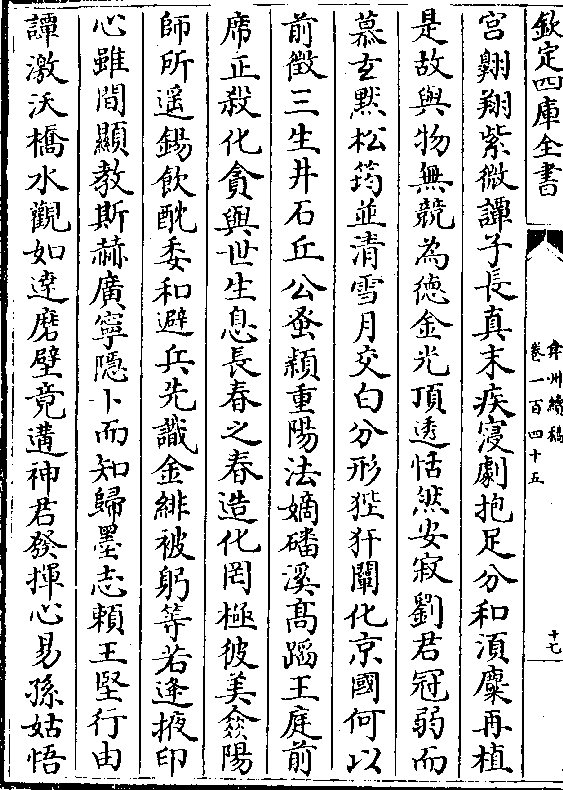 欽定四庫全書
弇州續稿
卷一百四十五
十七
宫翺翔紫微譚子長真末疾寖劇抱足分和湏麋再植
是故與物無競為德金光頂透恬然安寂劉君冠弱而
慕玄黙松筠並清雪月交白分形狴犴闡化京國何以
前徵三生井石丘公蚤頴重陽法嫡磻溪髙蹈王庭前
席正殺化貪與世生息長春之春造化罔極彼美龡陽
師所遥錫飲酖委和避兵先識金緋被躬等若逢掖印
心雖間顯教斯赫廣寧隐卜而知歸墨志頼王堅行由
譚激沃橋水觀如達磨壁竟遘神君發揮心易孫姑悟